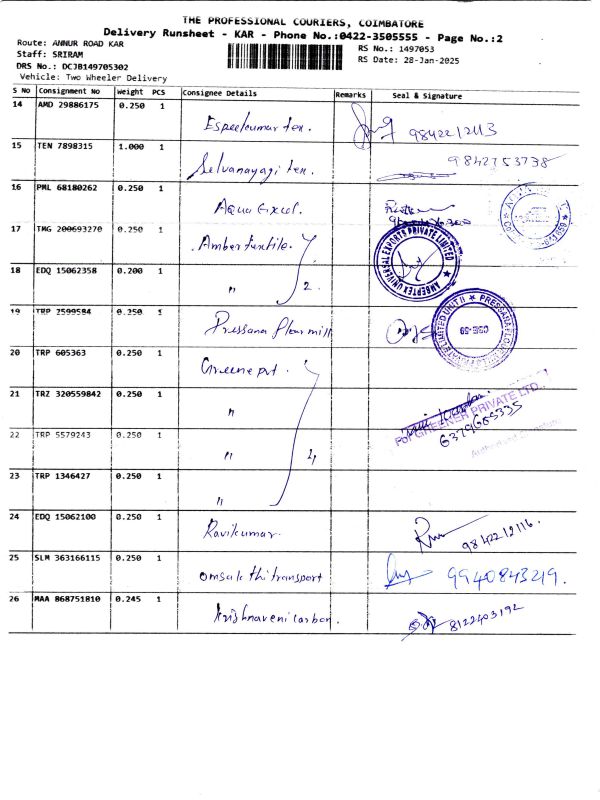 THE PROFESSIONAL COURIERS, COIMBATORE
Delivery Runsheet - KAR - Phone No.:0422-3505555 - Page No.:2
Route: ANNUR ROAD KAR
Staff: SRIRAM
DRS No.: DCJB149705302
Vehicle: Two Wheeler Delivery
RS No.: 1497053
RS Date: 28-Jan-2025
S No Consignment No Weight PCS Consignee Details Remarks Seal & Signature
14 AMD 29886175 0.250 1 Espeekumar tex. 9842212113
15 TEN 7898315 1.000 1 Selvanayagi tex. 9842753738
16 PML 68180262 0.250 1 Aqua Excel.
17 TMG 200693270 0.250 1 Amber textile. AMBERTEX UNIVERSAL EXPORTS PRIVATE LIMITED
18 EDQ 15062358 0.200 1 " 2.
19 TRP 2599584 0.250 1 Pressana flour mill
20 TRP 605363 0.250 1 Greene pvt.
21 TRZ 320559842 0.250 1 "
For GREENER PRIVATE LTD.,
6379685335
22 TRP 5579243 0.250 1 " 4
Authorised Signatory
23 TRP 1346427 0.250 1 "
24 EDQ 15062100 0.250 1 Ravikumar. 9842212116.
25 SLM 363166115 0.250 1 omsakthi transport 9940843219.
26 MAA 868751810 0.245 1 krishnaveni carbon. 8122403192